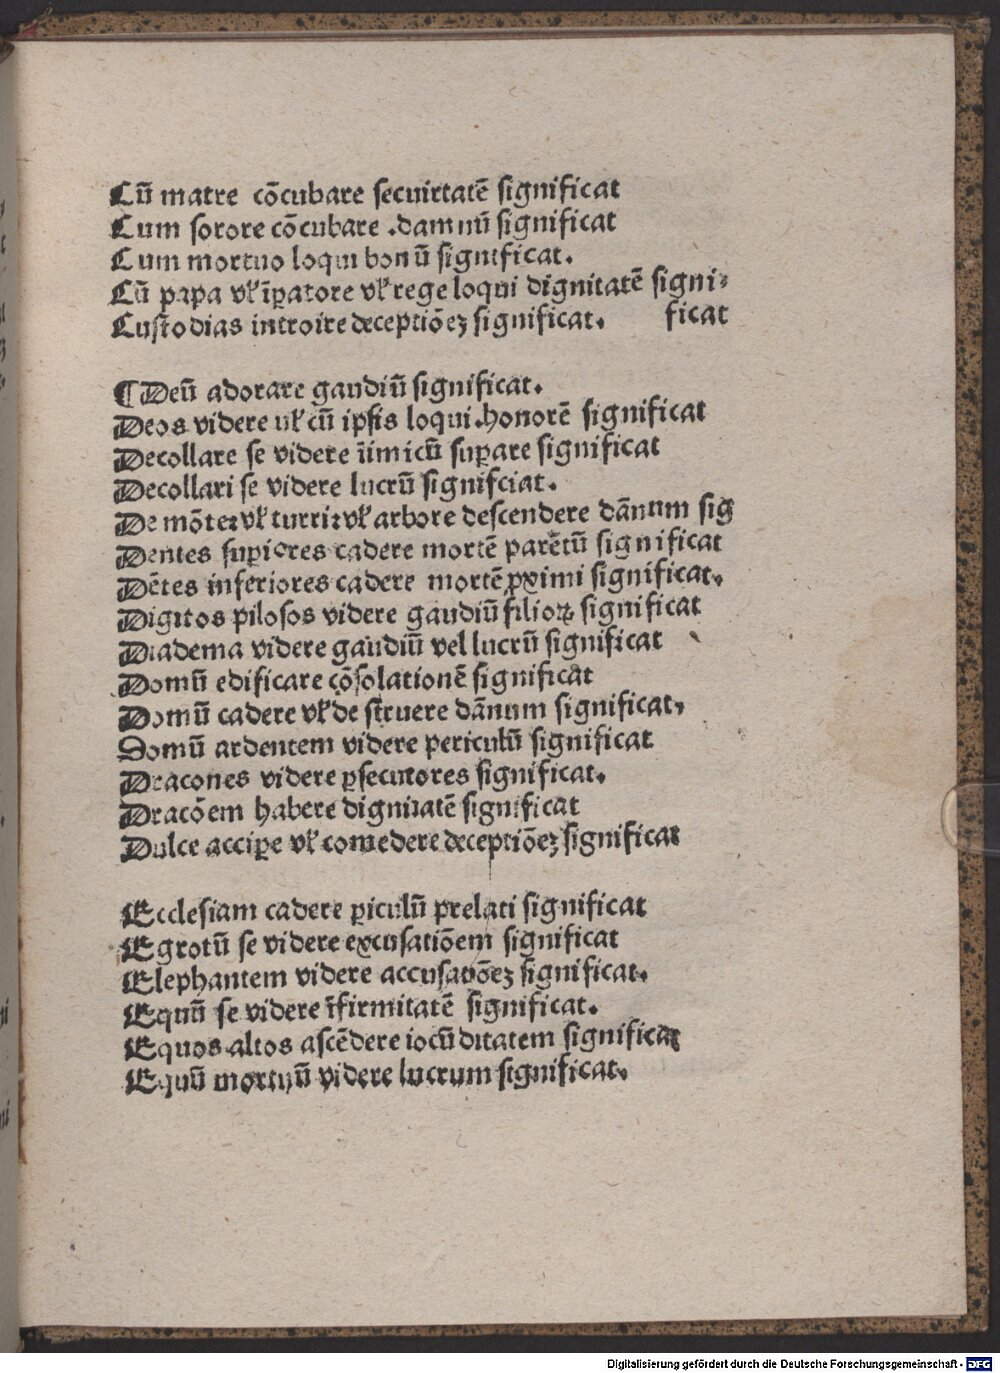 Cū matre cōcubare secuirtatē significat
Cum sorore cōcubare .damnū significat
Cum mortuo loqui bonū significat.
Cū papa vl̄ īꝑatore vl̄ rege loqui dignitatē signi-
Custodias introire deceptiōeꝫ significat. ficat
¶ Deū adorare gaudiū significat.
Deos videre vl̄ cū ipsis loqui.honorē significat
Decollare se videre īimicū suꝑare significat
Decollari se videre lucrū signifciat.
De mōte:vl̄ turri:vl̄ arbore descendere dānum siḡ
Dentes suꝑiores cadere mortē parētū significat
Dētes inferiores cadere mortē ꝓximi significat.
Digitos pilosos videre gaudiū filioꝝ significat
Diadema videre gaudiū vel lucrū significat
Domū edificare cōsolationē significat
Domū cadere vl̄ de struere dānum significat,
Domū ardentem videre periculū significat
Dracones videre ꝑsecutores significat.
Dracōem habere dignitatē significat
Dulce acciꝑe vl̄ comedere deceptiōeꝫ significat
Ecclesiam cadere ꝑiculū prelati significat
Egrotū se videre excusatiōem significat
Elephantem videre accusatiōeꝫ significat.
Equū se videre īfirmitatē significat.
Equos altos ascēdere iocūditatem significat
Equū mortuū videre lucrum significat.
Digitalisierung gefördert durch die Deutsche Forschungsgemeinschaft - DFG